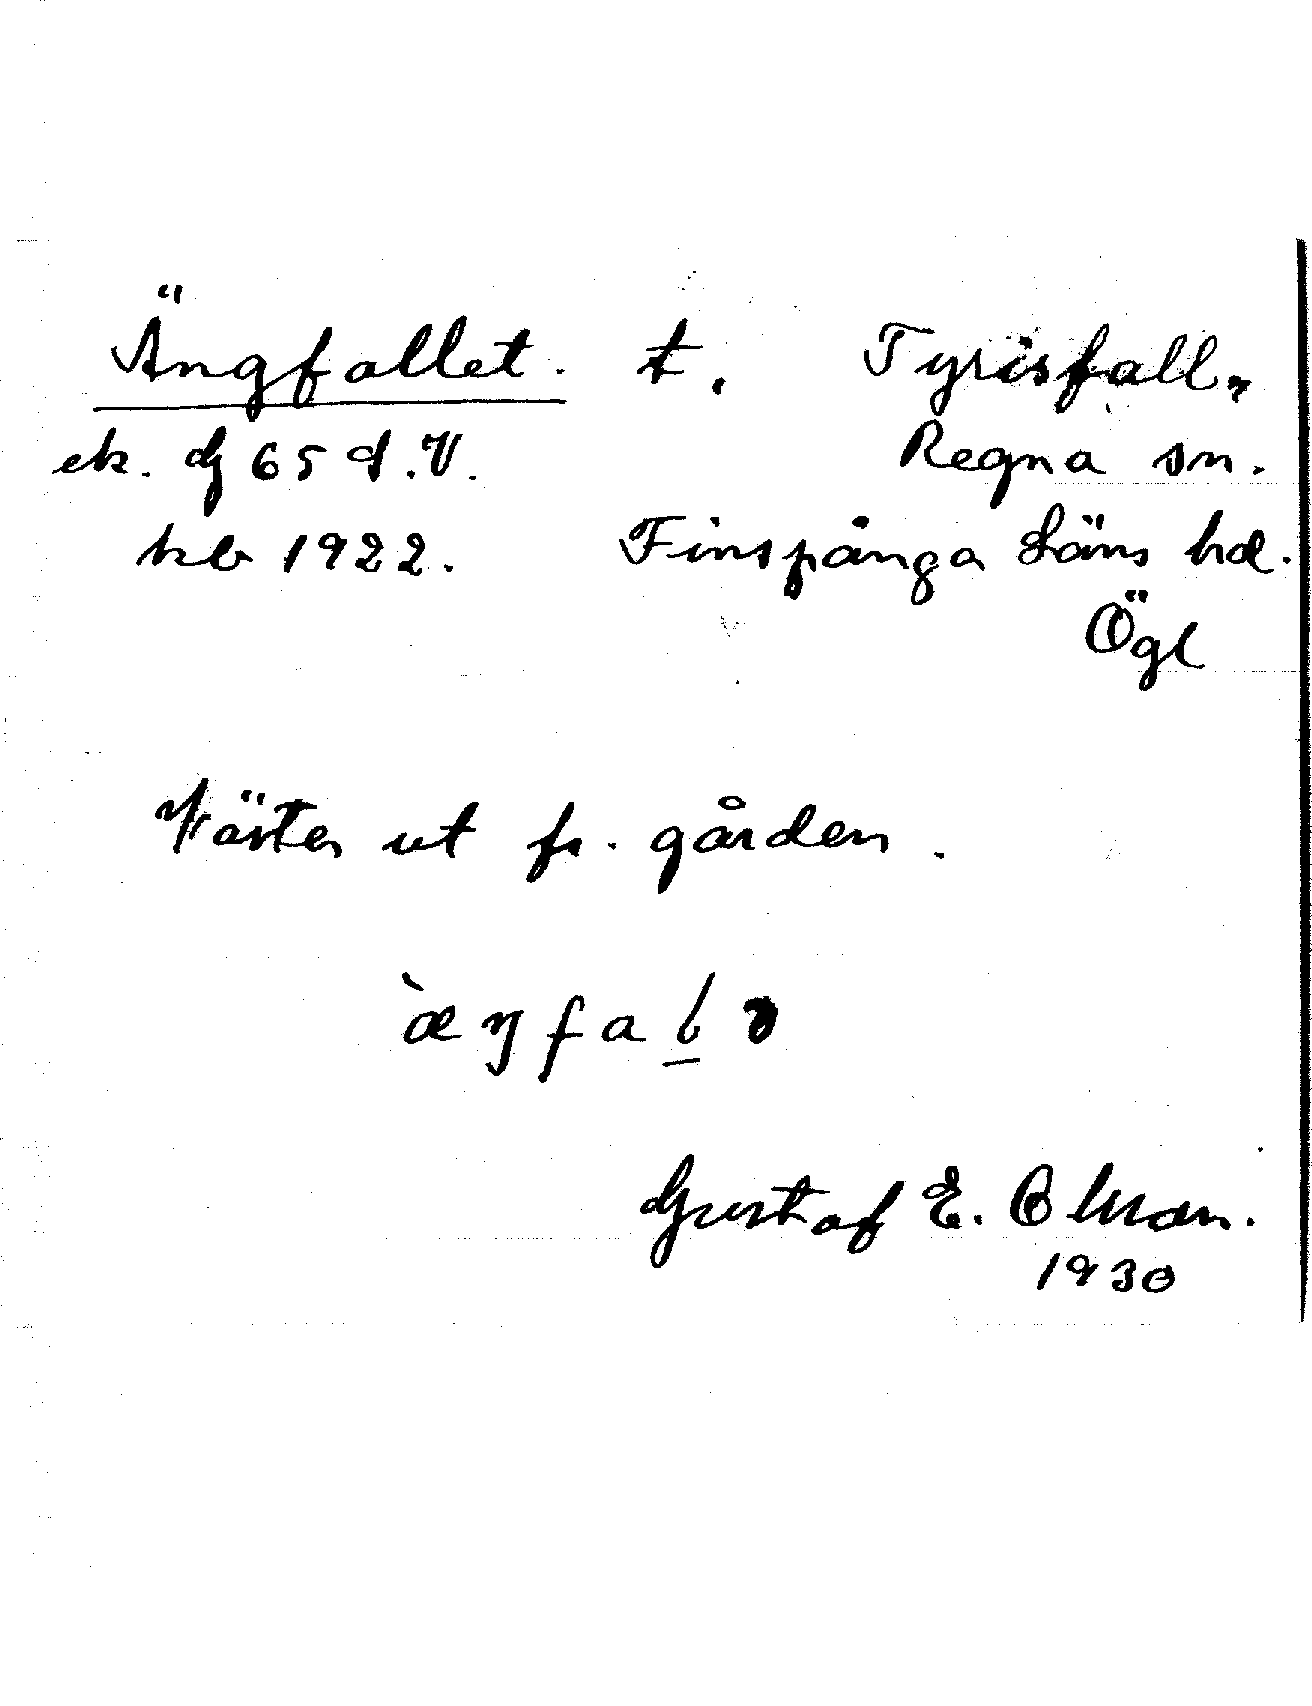 Ängfallet. t. Tyrisfall,
ek. G 65 d. V. Regna sn.
kb 1922. Finspånga Läns hd.
Ögl
Väster ut fr. gården.
æ̀ŋfal̲ə
Gustaf E. Olman.
1930